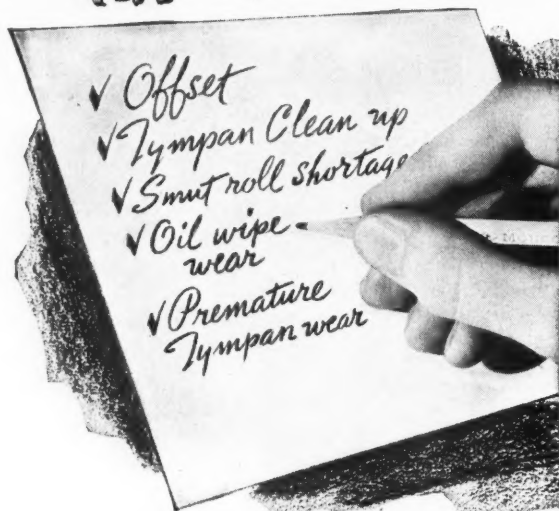 ✓ Offset
✓ Tympan Clean up
✓ Smut roll shortage
✓ Oil wipe
wear
✓ Premature
Tympan wear